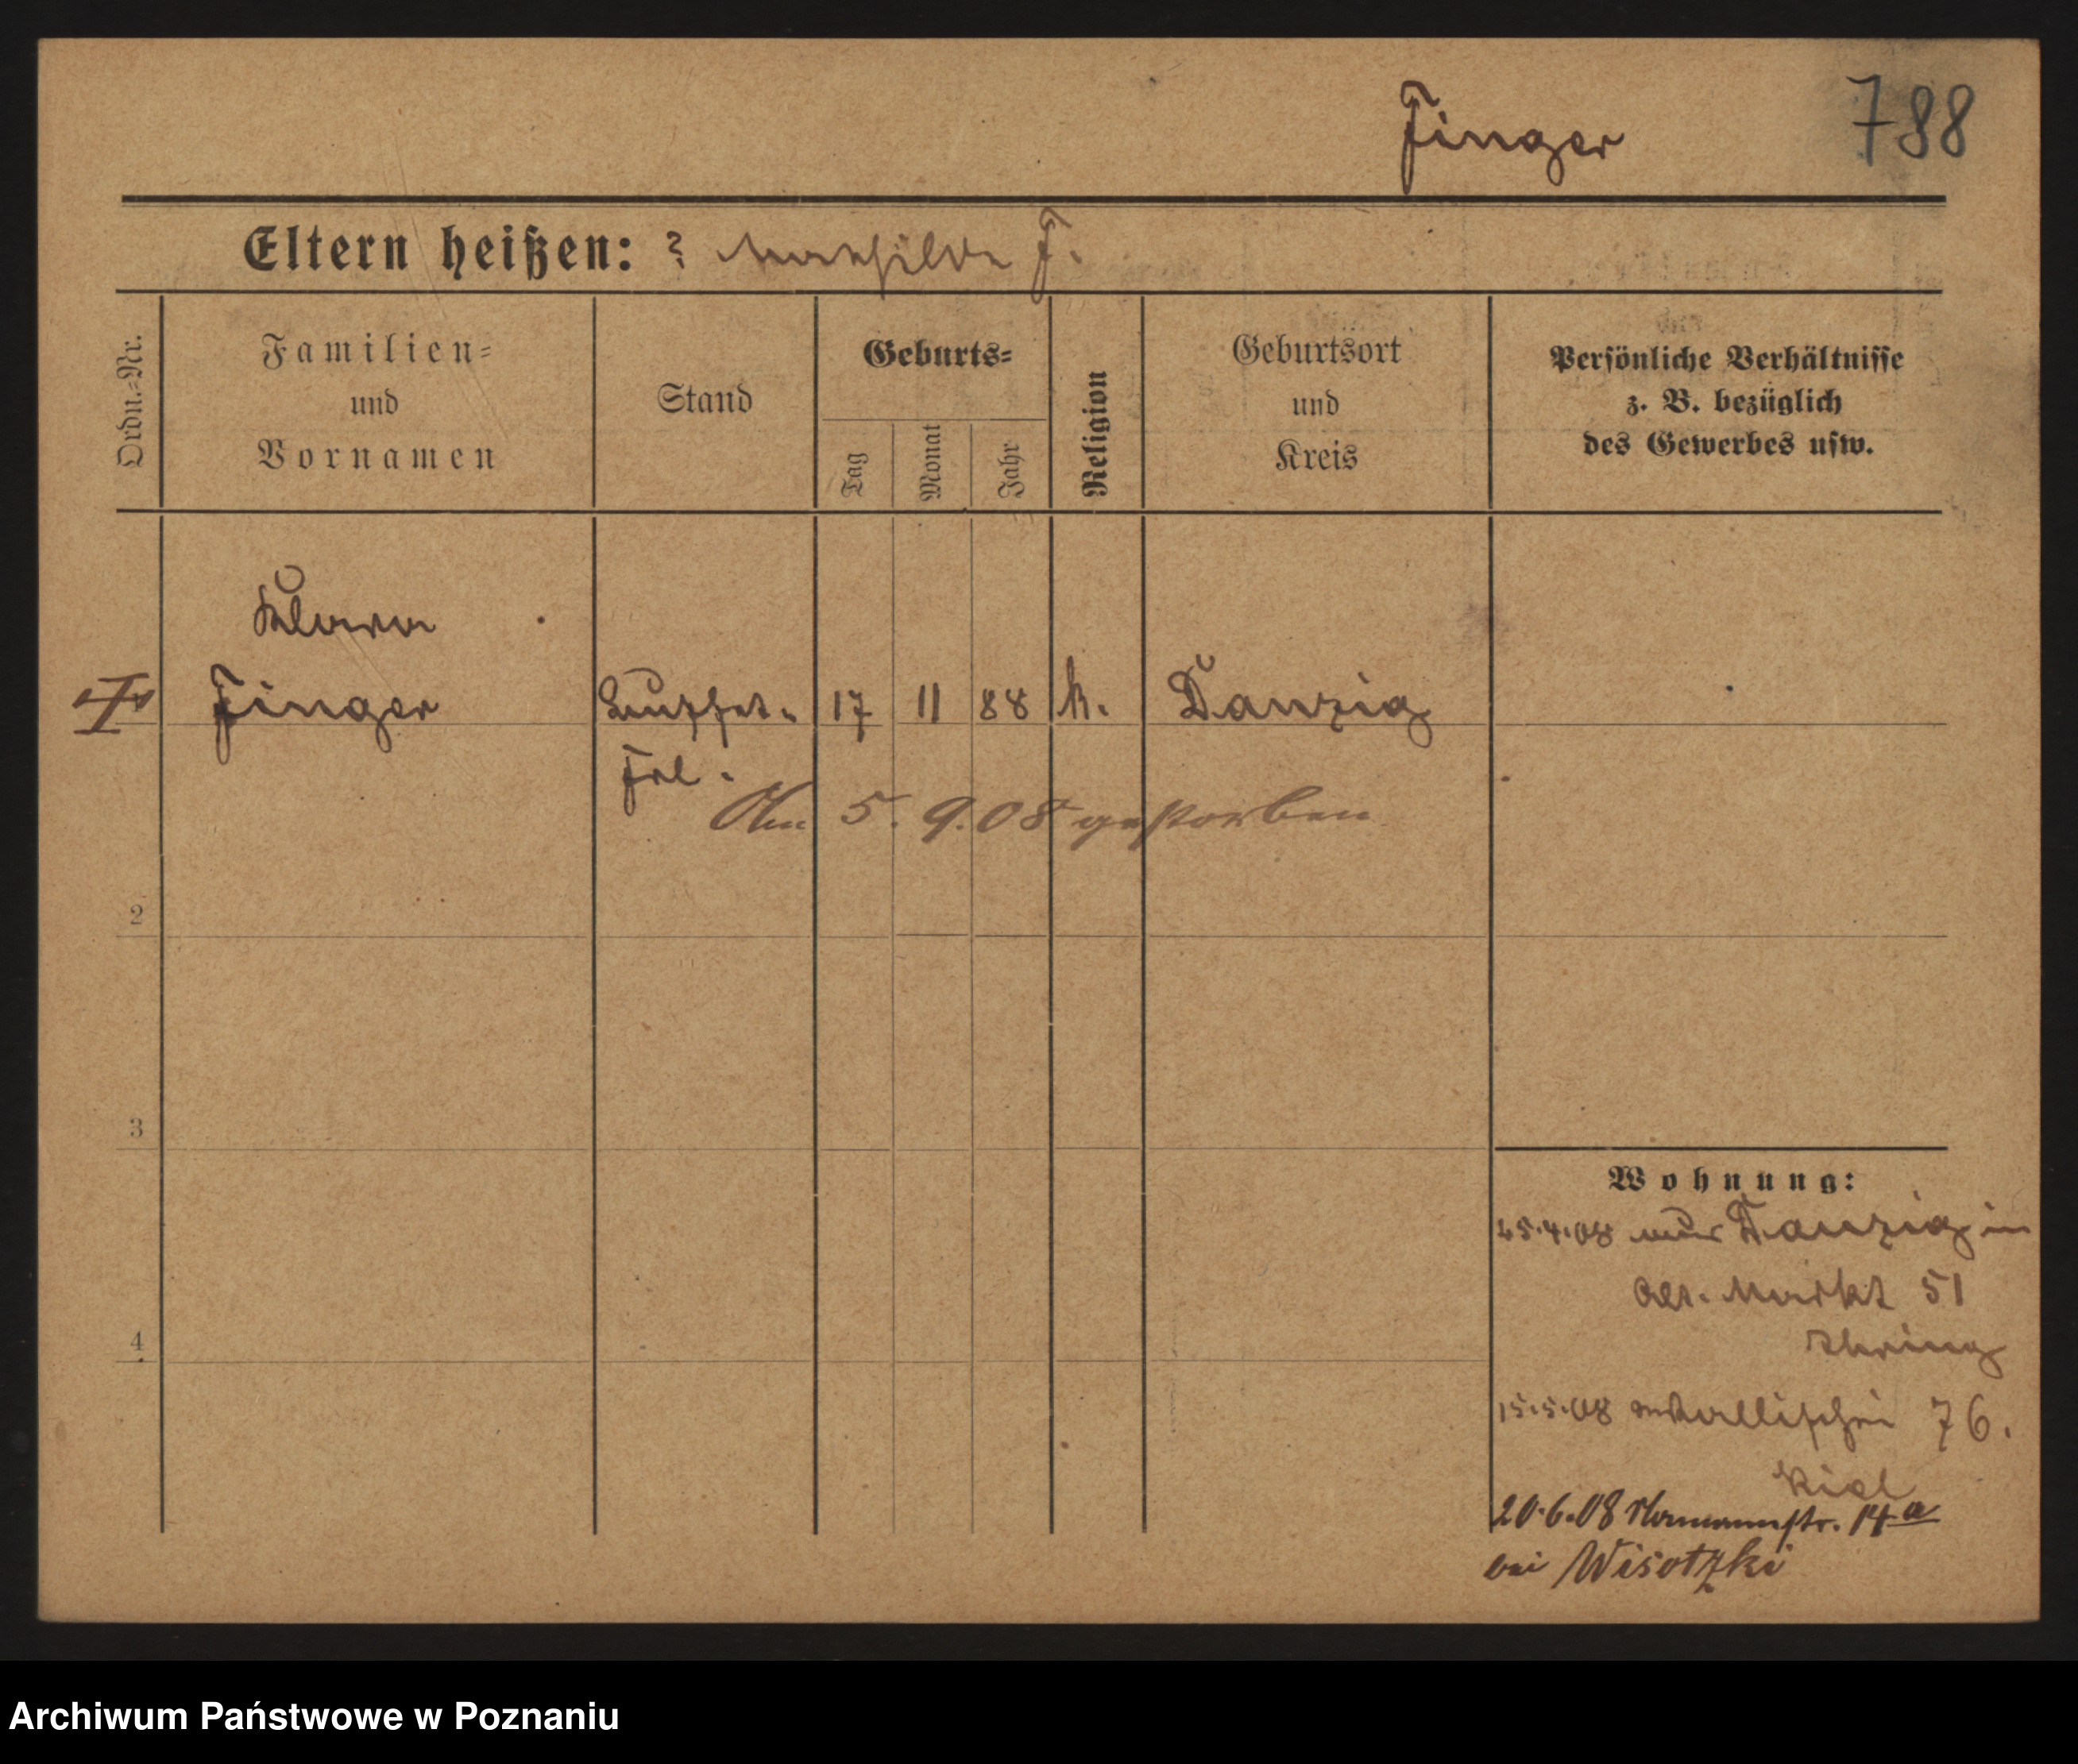 Finger
788
Eltern heißen: ? Mathilde F.
Ordn.=Nr.
Familien=
und
Vornamen
Stand
Geburts=
Tag
Monat
Jahr
Religion
Geburtsort
und
Kreis
Persönliche Verhältnisse
z. B. bezüglich
des Gewerbes usw.
Klara
Finger 17 11 88 k. Danzig
Frl.
Am 5. 9. 08 gestorben
2
3
4
Wohnung:
25.4.08 aus Danzig in
Alt. Markt 51
15.5.08 Wallischei 76.
Kiel
20.6.08 14a
bei Wisotzki
Archiwum Państwowe w Poznaniu